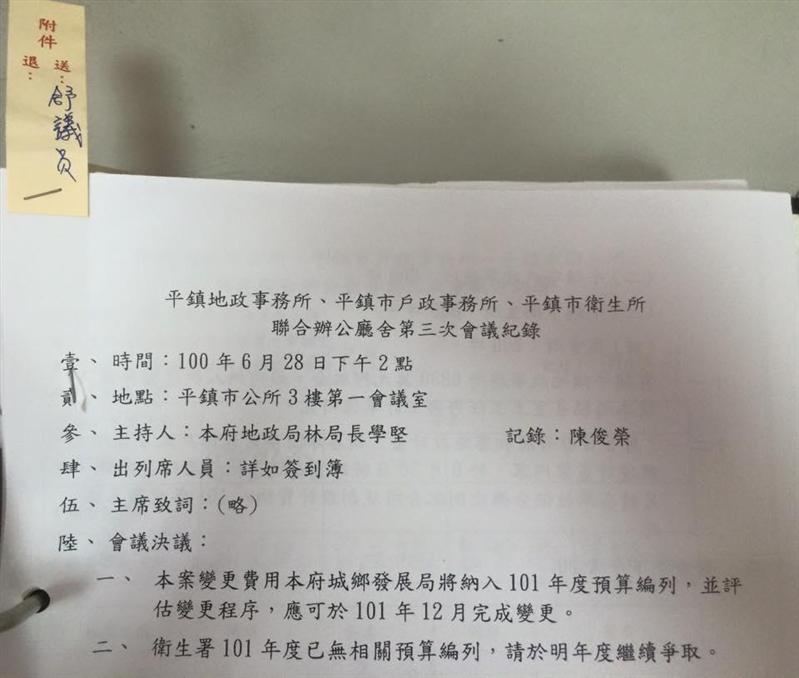 附件
送：舒議員
退：
平鎮地政事務所、平鎮市戶政事務所、平鎮市衛生所
聯合辦公廳舍第三次會議紀錄
壹、時間：100年6月28日下午2點
貳、地點：平鎮市公所3樓第一會議室
參、主持人：本府地政局林局長學堅 記錄：陳俊榮
肆、出列席人員：詳如簽到簿
伍、主席致詞：(略)
陸、會議決議：
一、本案變更費用本府城鄉發展局將納入101年度預算編列，並評
估變更程序，應可於101年12月完成變更。
二、衛生署101年度已無相關預算編列，請於明年度繼續爭取。